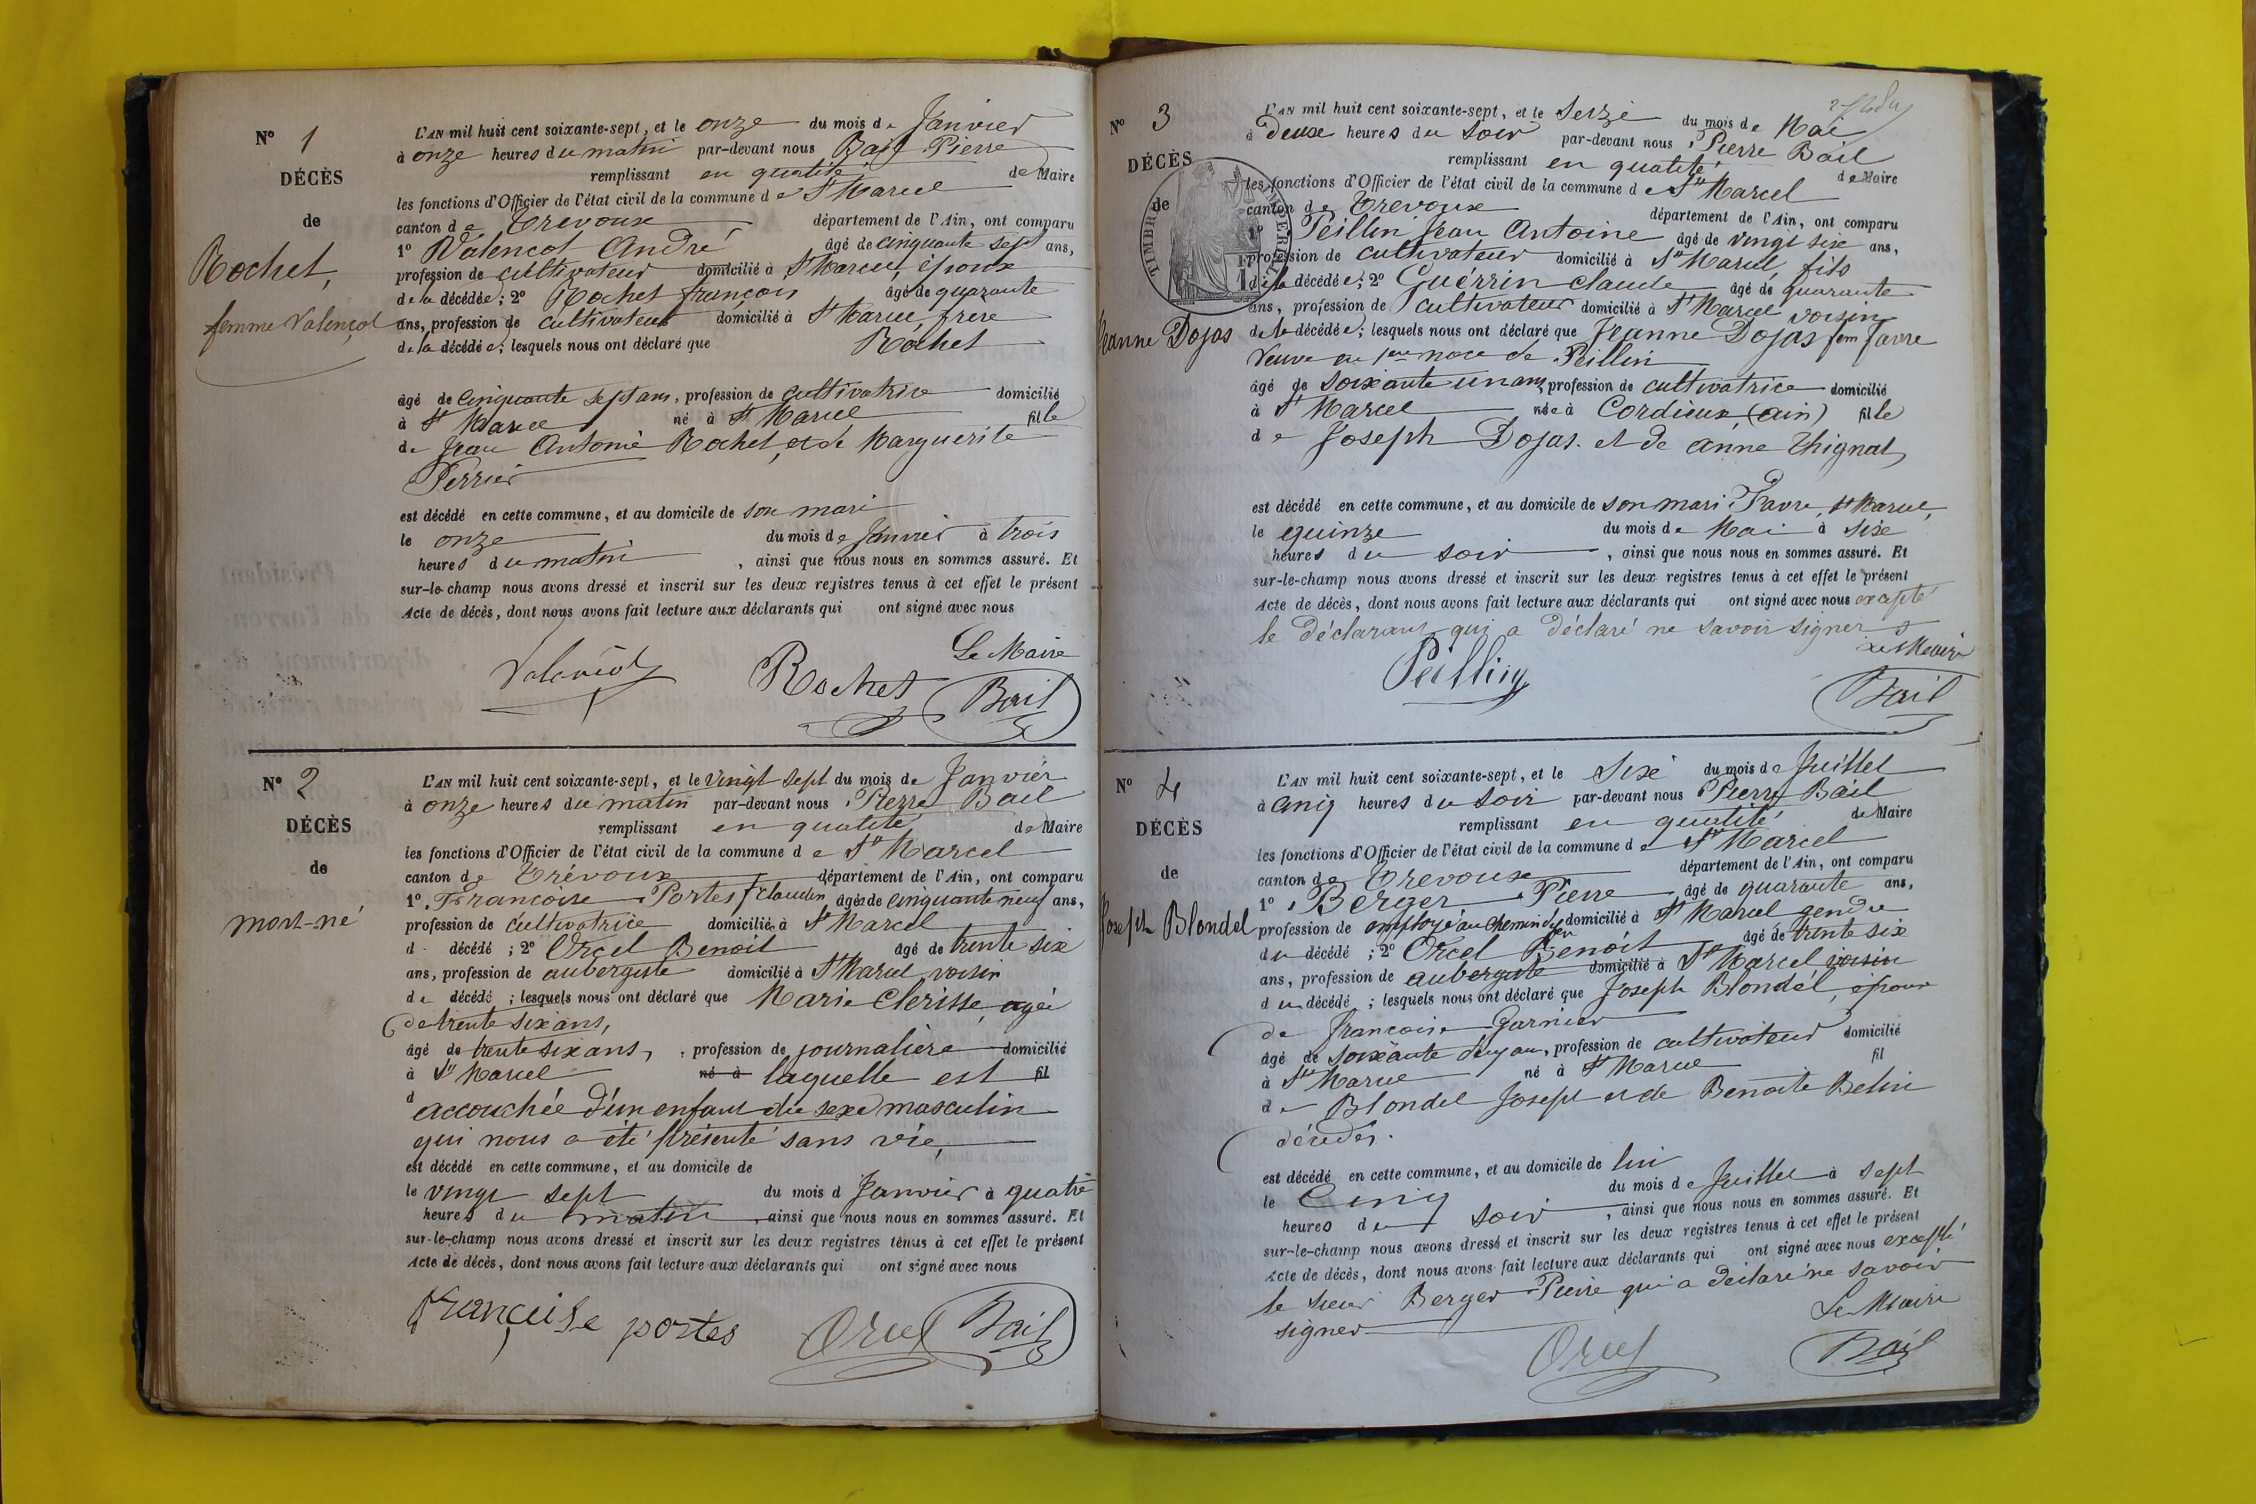 N° 1
DÉCÈS
de
Rochet,
femme Valençot
L'AN mil huit cent soixante-sept, et le onze du mois de Janvier
à onze heures du matin par-devant nous Bail Pierre
remplissant en qualité de Maire
les fonctions d'Officier de l'état civil de la commune de St Marcel
canton de Trevoux département de l'Ain, ont comparu
1° Valencot André âgé de cinquante sept ans,
profession de cultivateur domicilié à St Marcel, époux
de la décédée; 2° Rochet françois âgé de quarante
ans, profession de cultivateur domicilié à St Marcel, frère
de la décédée; lesquels nous ont déclaré que Rochet
âgé de cinquante sept ans, profession de cultivatrice domicilié
à St Marcel né à St Marcel fille
de Jean Antoine Rochet, et de Marguerite
Perrier
est décédé en cette commune, et au domicile de son mari
le onze du mois de Janvier à trois
heures du matin, ainsi que nous nous en sommes assuré. Et
sur-le-champ nous avons dressé et inscrit sur les deux registres tenus à cet effet le présent
Acte de décès, dont nous avons fait lecture aux déclarants qui ont signé avec nous
Le Maire
Valençot Rochet Bail
N° 2
DÉCÈS
de
mort-né
L'AN mil huit cent soixante-sept, et le vingt sept du mois de Janvier
à onze heures du matin par-devant nous Pierre Bail
remplissant en qualité de Maire
les fonctions d'Officier de l'état civil de la commune de St Marcel
canton de Trévoux département de l'Ain, ont comparu
1° Françoise Portes f Claudin âgée de cinquante neuf ans,
profession de cultivatrice domiciliée à St Marcel
d décédé; 2° Orcel Benoit âgé de trente six
ans, profession de aubergiste domicilié à St Marcel voisin
de décédé; lesquels nous ont déclaré que Marie Clerisse, agée
de trente six ans,
âgé de trente six ans, profession de journalière domicilié
à St Marcel né à laquelle est fil
d accouchée d'un enfant du sexe masculin
qui nous a été présenté sans vie,
est décédé en cette commune, et au domicile de
le vingt sept du mois d Janvier à quatre
heures du matin, ainsi que nous nous en sommes assuré. Et
sur-le-champ nous avons dressé et inscrit sur les deux registres tenus à cet effet le présent
Acte de décès, dont nous avons fait lecture aux déclarants qui ont signé avec nous
françoise portes Orcel Bail
N° 3
DÉCÈS
de
TIMBRE IMPERIAL
Jeanne Dojas
L'AN mil huit cent soixante-sept, et le Seize du mois de Mai
à deux heures du soir par-devant nous Pierre Bail
remplissant en qualité de Maire
les fonctions d'Officier de l'état civil de la commune de St Marcel
canton de Trevoux département de l'Ain, ont comparu
1° Peillin Jean Antoine âgé de vingt six ans,
profession de cultivateur domicilié à St Marcel, fils
de la décédée; 2° Guérrin claude âgé de quarante
ans, profession de cultivateur domicilié à St Marcel voisin
de la décédée; lesquels nous ont déclaré que Jeanne Dojas fem Favre
Veuve en 1ere noce de Peillin
âgé de soixante un ans, profession de cultivatrice domicilié
à St Marcel née à Cordieux, (ain) fille
de Joseph Dojas. et de anne Thignat,
est décédé en cette commune, et au domicile de son mari Favre, St Marcel,
le quinze du mois de Mai à six
heures du soir, ainsi que nous nous en sommes assuré. Et
sur-le-champ nous avons dressé et inscrit sur les deux registres tenus à cet effet le présent
Acte de décès, dont nous avons fait lecture aux déclarants qui ont signé avec nous excepté
le déclarant qui a déclaré ne savoir signer
Le Maire
Peilling
Bail
N° 4
DÉCÈS
de
Joseph Blondel
L'AN mil huit cent soixante-sept, et le Six du mois de Juillet
à cinq heures du soir par-devant nous Pierre Bail
remplissant en qualité de Maire
les fonctions d'Officier de l'état civil de la commune de St Marcel
canton de Trevoux département de l'Ain, ont comparu
1° Berger Pierre âgé de quarante ans,
profession de employé au chemin de fer domicilié à St Marcel gendre
du décédé; 2° Orcel Benoit âgé de trente six
ans, profession de aubergiste domicilié à St Marcel voisin
du décédé; lesquels nous ont déclaré que Joseph Blondel, époux
de françoise Garnier
âgé de soixante dix ans, profession de cultivateur domicilié
à St Marcel né à St Marcel fil
de Blondel Joseph et de Benoite Belin
décédés.
est décédé en cette commune, et au domicile de lui
le Cinq du mois de Juillet à sept
heures du soir, ainsi que nous nous en sommes assuré. Et
sur-le-champ nous avons dressé et inscrit sur les deux registres tenus à cet effet le présent
Acte de décès, dont nous avons fait lecture aux déclarants qui ont signé avec nous excepté
le sieur Berger Pierre qui a déclaré ne savoir
signer Le Maire
Orcel Bail